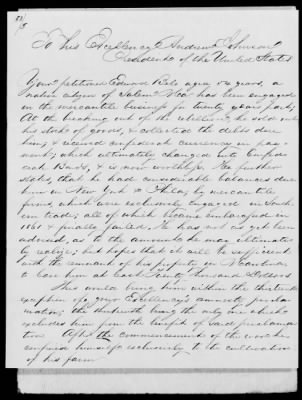 To His Excellency Andrew Johnson
President of the United States
Your petitioner Edward Belo aged 54 years, a
native citizen of Salem N.Ca. has been engaged
in the mercantile business for twenty years past;
At the breaking out of the rebellion, he sold out
his stock of goods, & collected the debts due
him, & received confederate currency in pay-
ment; which ultimately changed into Confede-
rate Bonds, & is now worthless. He further
states, that he had considerable balances due
him in New York & Phila; by mercantile
firms, which were exclusively engaged in South-
ern trade; all of which became embarrassed in
1861 & finally failed. He has not as yet been
advised, as to the amounts he may ultimately
realize; but hopes that it will be sufficient
with the remnant of his property in N. Carolina
to leave him at least Twenty Thousand Dollars
This would bring him within the thirteenth
exception of your Excellency's amnesty procla-
mation; the thirteenth being the only one which
excludes him from the benefit of said proclama-
tion. After the commencement of the war he
confined himself exclusively to the cultivation
of his farm